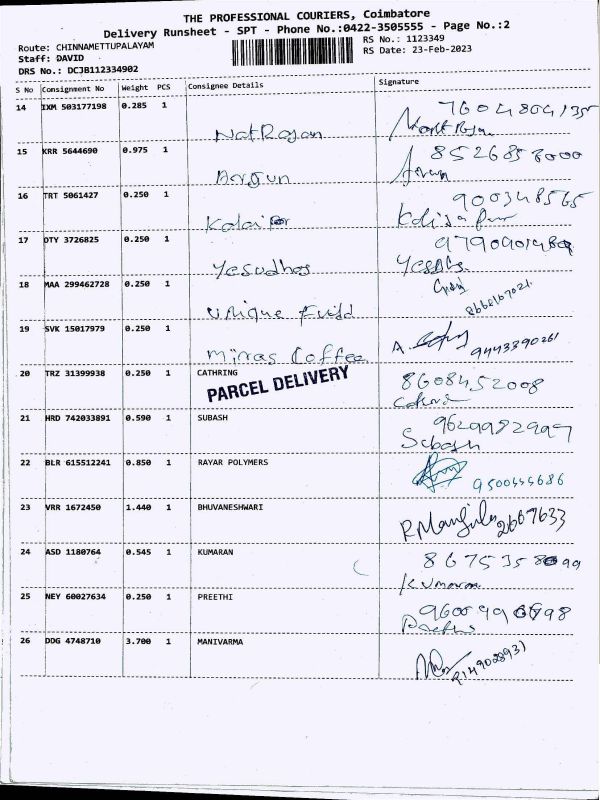 THE PROFESSIONAL COURIERS, Coimbatore
Delivery Runsheet - SPT - Phone No.:0422-3505555 - Page No.:2
Route: CHINNAMETTUPALAYAM
RS No.: 1123349
Staff: DAVID
RS Date: 23-Feb-2023
DRS No.: DCJB112334902
S No Consignment No Weight PCS Consignee Details Signature
14 IXM 503177198 0.285 1
NatRajan
15 KRR 5644690 0.975 1 852685 8000
Arjun
16 TRT 5061427 0.250 1 900348565
17 OTY 3726825 0.250 1
Yesudhas
18 MAA 299462728 0.250 1
unique Fuild
19 SVK 15017979 0.250 1
Miras Coffee 9443390261
20 TRZ 31399938 0.250 1 CATHRING 8608452008
PARCEL DELIVERY
21 HRD 742033891 0.590 1 SUBASH 9629982997
Subash
22 BLR 615512241 0.850 1 RAYAR POLYMERS
9500455686
23 VRR 1672450 1.440 1 BHUVANESHWARI
R.Manjula 2667633
24 ASD 1180764 0.545 1 KUMARAN
Kumaran
25 NEY 60027634 0.250 1 PREETHI
Preethi
26 DDG 4748710 3.700 1 MANIVARMA